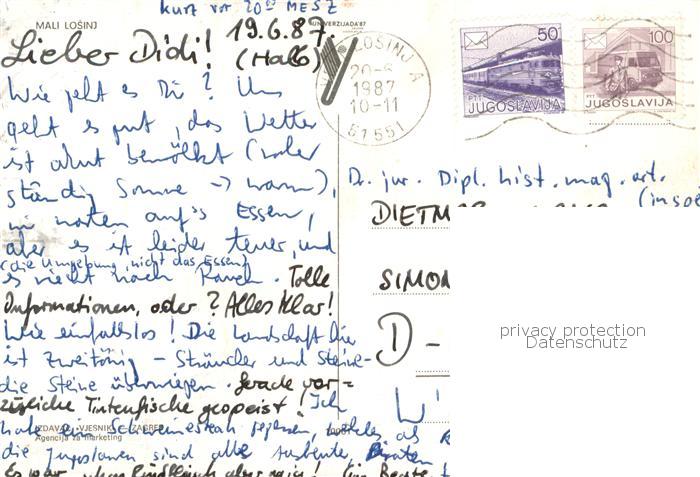 kurz vor 20⁰⁰ MESZ
MALI LOŠINJ
UNIVERZIJADA'87
19.6.87.
Lieber Didi! (Hallo)
LOŠINJ A
20-6
1987
10-11
51551
50
PTT
JUGOSLAVIJA
100
PTT
JUGOSLAVIJA
Wie geht es Dir? Uns
geht es gut, das Wetter
ist bewölkt (oder
ständig Sonne → warm),
wir warten auf's Essen,
aber es ist leider teuer, und
(die Umgebung, nicht das Essen)
es riecht nach Rauch. Tolle
Informationen, oder? Alles Klar!
Wie einfallslos! Die Landschaft hier
ist zweitönig – Sträucher und Steine –
die Steine überwiegen. Gerade vor-
zügliche Tintenfische gespeist! Ich
IZDAVAČ »VJESNIK« – ZAGREB
Agencija za marketing
habe ein Schweinesteak gegessen, als
die Jugoslawen sind alle
Es war aber
Dr. jur. Dipl. hist. mag. art.
DIETM
SIMON
D -
W
privacy protection
Datenschutz